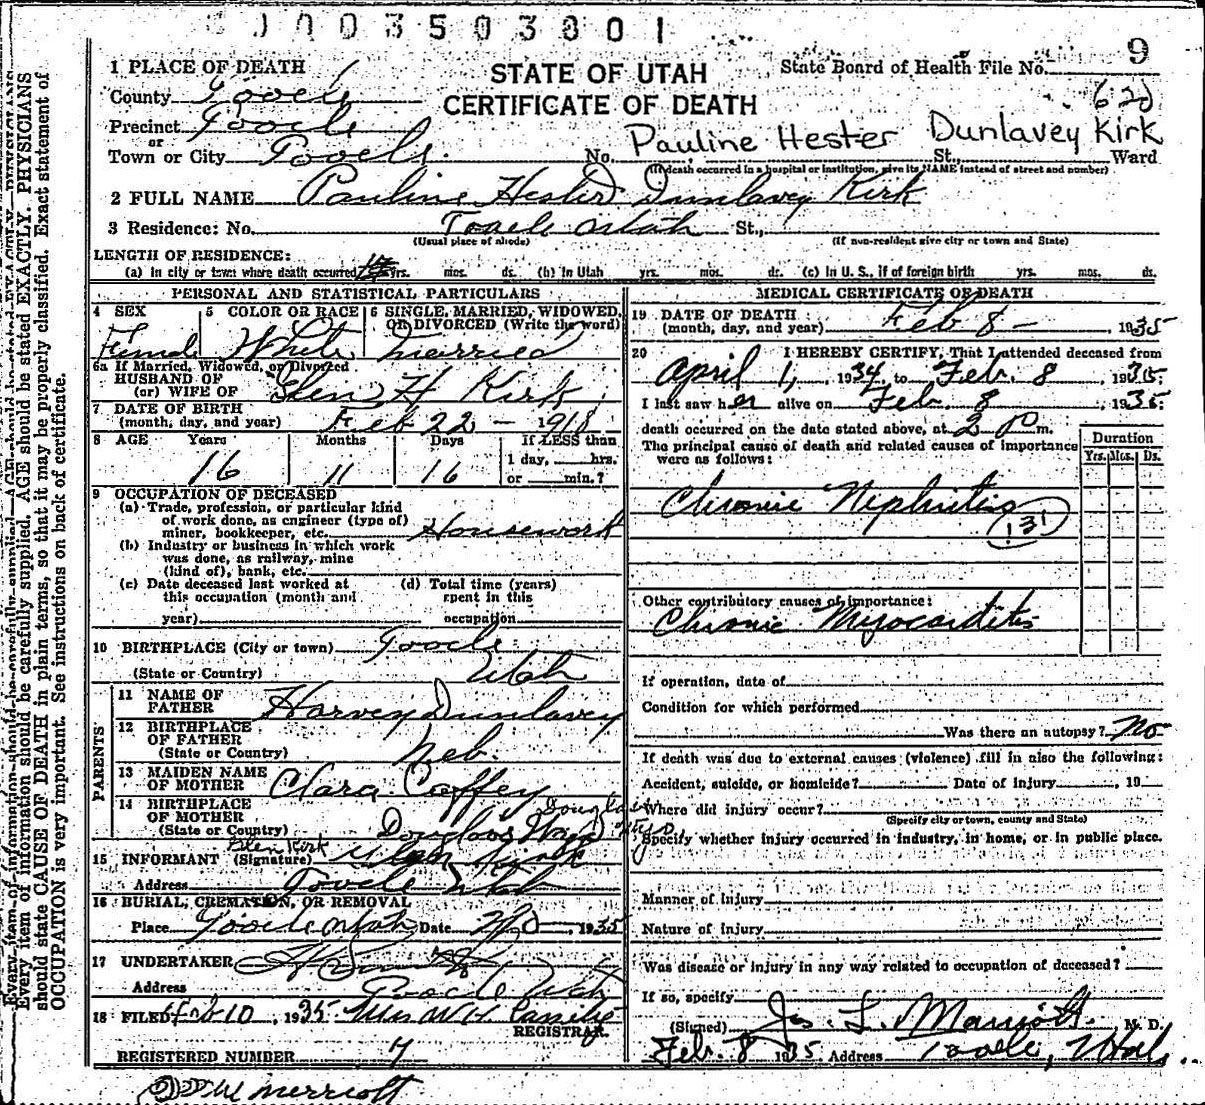 0003503001
9
1 PLACE OF DEATH
STATE OF UTAH
State Board of Health File No.
County Tooele
CERTIFICATE OF DEATH
620
Precinct Tooele
or
Pauline Hester Dunlavey Kirk
Town or City Tooele. No. St., Ward
(If death occurred in a hospital or institution, give its NAME instead of street and number)
2 FULL NAME Pauline Hester Dunlavey Kirk
3 Residence: No. Tooele Utah St.,
(Usual place of abode) (If non-resident give city or town and State)
LENGTH OF RESIDENCE:
(a) In city or town where death occurred yrs. mos. ds. (b) In Utah yrs. mos. ds. (c) In U. S., if of foreign birth yrs. mos. ds.
PERSONAL AND STATISTICAL PARTICULARS
4 SEX 5 COLOR OR RACE 6 SINGLE, MARRIED, WIDOWED, OR DIVORCED (Write the word)
Female White married
6a If Married, Widowed, or Divorced
HUSBAND OF
(or) WIFE OF Glen H Kirk
7 DATE OF BIRTH
(month, day, and year) Feb 22 - 1918
8 AGE Years Months Days If LESS than
16 11 16 1 day, hrs.
or min.?
9 OCCUPATION OF DECEASED
(a) Trade, profession, or particular kind
of work done, as engineer (type of)
miner, bookkeeper, etc. Housework
(b) Industry or business in which work
was done, as railway, mine
(kind of), bank, etc.
(c) Date deceased last worked at (d) Total time (years)
this occupation (month and spent in this
year) occupation
10 BIRTHPLACE (City or town) Tooele
(State or Country) Utah
PARENTS
11 NAME OF
FATHER Harvey Dunlavey
12 BIRTHPLACE
OF FATHER
(State or Country) Neb.
13 MAIDEN NAME
OF MOTHER Clara Caffey
14 BIRTHPLACE
OF MOTHER
(State or Country) Douglas Wyo
Douglas
Wyo
Glen Kirk
15 INFORMANT (Signature) Glen Kirk
Address Tooele Utah
16 BURIAL, CREMATION, OR REMOVAL
Place Tooele Utah Date , 1935
17 UNDERTAKER
Address Tooele Utah
18 FILED Feb 10, 1935 Mrs W H
REGISTRAR.
REGISTERED NUMBER 7
MEDICAL CERTIFICATE OF DEATH
19 DATE OF DEATH
(month, day, and year) Feb 8 - , 1935
20 I HEREBY CERTIFY, That I attended deceased from
April 1, 1934, to Feb. 8, 1935.
I last saw her alive on Feb. 8, 1935.
death occurred on the date stated above, at 2 P m.
The principal cause of death and related causes of importance
were as follows:
Duration
Yrs. Mos. Ds.
Chronic Nephritis
131
Other contributory causes of importance:
Chronic Myocarditis
If operation, date of
Condition for which performed
Was there an autopsy? No
If death was due to external causes (violence) fill in also the following:
Accident, suicide, or homicide? Date of injury , 19
Where did injury occur?
(Specify city or town, county and State)
Specify whether injury occurred in industry, in home, or in public place.
Manner of injury
Nature of injury
Was disease or injury in any way related to occupation of deceased?
If so, specify
(Signed) Jos. L. Marriott. M. D.
Feb. 8 1935 Address Tooele, Utah.
Every item of information should be carefully supplied. AGE should be stated EXACTLY. PHYSICIANS
should state CAUSE OF DEATH in plain terms, so that it may be properly classified. Exact statement of
OCCUPATION is very important. See instructions on back of certificate.